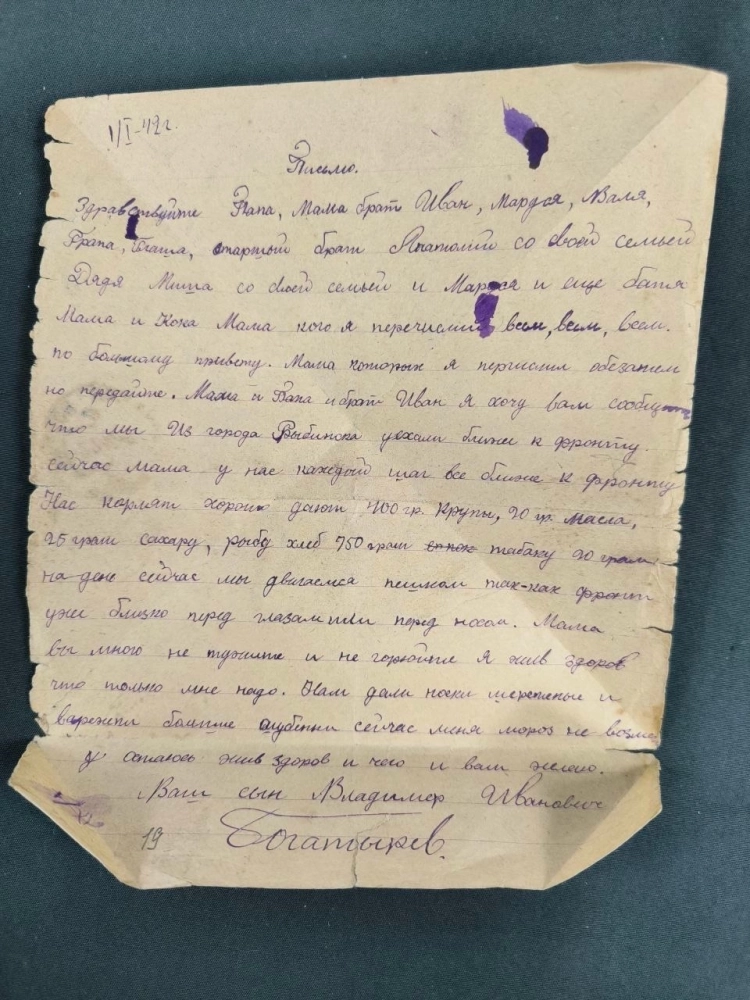 1/I-42г.
Письмо.
Здравствуйте Папа, Мама брат Иван, Маруся, Валя,
старший брат Анатолий со своей семьей
Дядя Миша со своей семьей и Маруся и еще батя
Мама и Кока Мама кого я перечислил всем, всем, всем.
по большому привету. Мама которых я перчислил обезатель
но передайте. Мама и Папа и брат Иван я хочу вам сообщить
что мы Из города Рыбинска уехали ближе к фронту.
сейчас мама у нас каждый шаг все ближе к фронту
Нас кормят хорошо дают 400 гр. Крупы, 20 гр. масла,
25 грам сахару, рыбу хлеб 750 грам табаку 20 грам
на день сейчас мы двигаемся пешком так-как фронт
уже близко перед глазам или перед носом. Мама
вы много не тужите и не горюйте Я жив здоров
что только мне надо. Нам дали носки шерстеные и
варежки большие шубенки сейчас меня мороз не возме
у остаюсь жив здоров и чего и вам желаю.
Ваш сын Владимер Иванович
19 Богатырев.